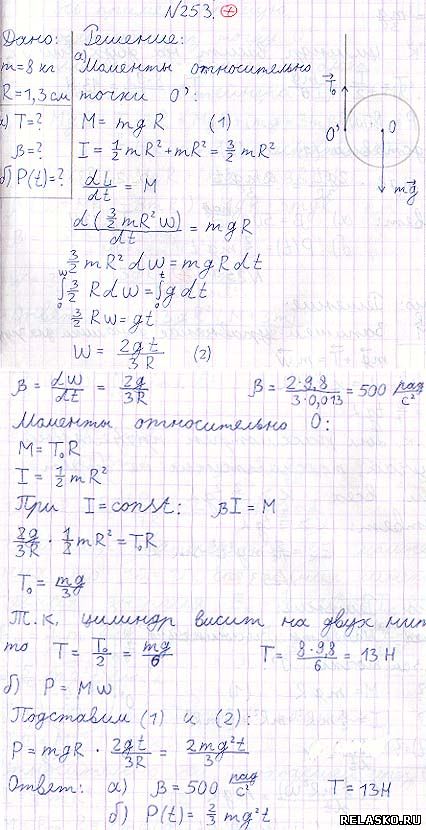 N253. +
Дано: Решение:
m=8 кг а) Моменты относительно
R=1,3 см точки O':
а) T=? M=mgR (1)
β=? I=½mR²+mR²=3/2 mR²
б) P(t)=? dL/dt = M
d(3/2 mR²ω)/dt = mgR
3/2 mR²dω=mgRdt
∫₀^ω 3/2 Rdω=∫₀^t gdt
3/2 Rω=gt
ω = 2gt/3R (2)
T⃗₀
O' O
mg⃗
β = dω/dt = 2g/3R β = 2·9,8/3·0,013 = 500 рад/с²
Моменты относительно O:
M=T₀R
I=½mR²
При I=const: βI=M
2g/3R · ½mR²=T₀R
T₀=mg/3
Т.к. цилиндр висит на двух нит
то T=T₀/2=mg/6 T=8·9,8/6=13 Н
б) P=Mω
Подставим (1) и (2):
P=mgR · 2gt/3R = 2mg²t/3
Ответ: а) β=500 рад/с² T=13Н
б) P(t)=2/3 mg²t
RELASKO.RU